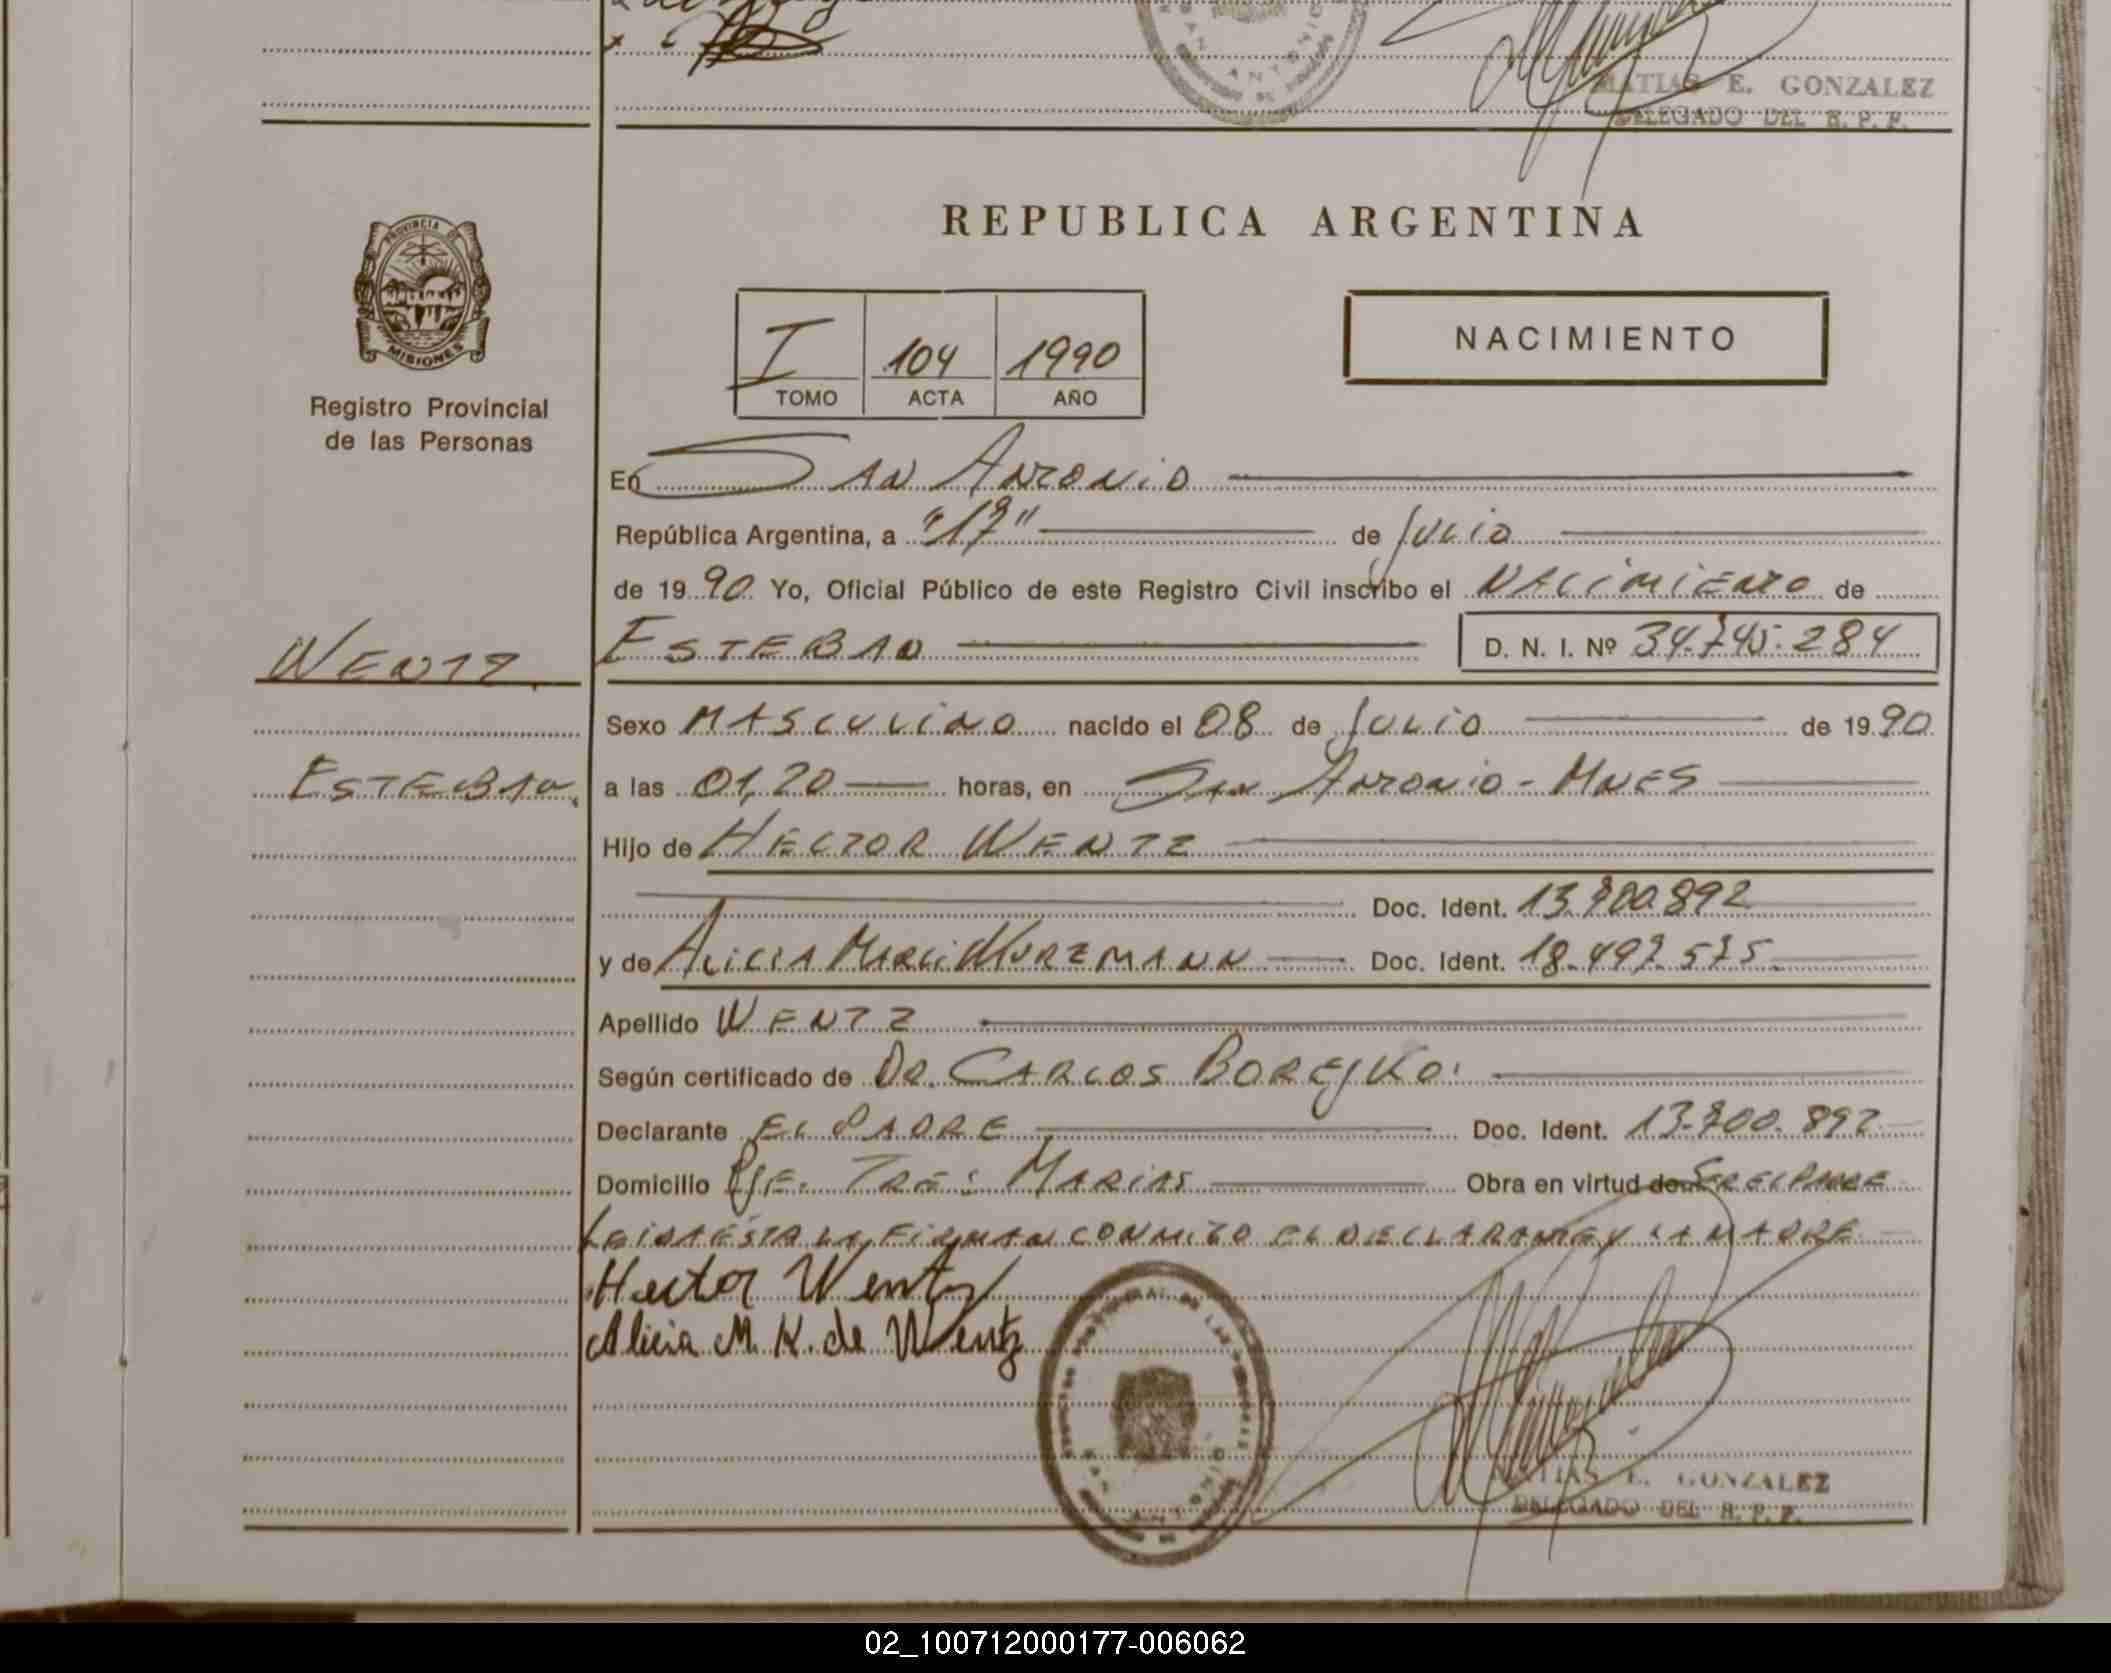 SAN ANTONIO
MATIAS E. GONZALEZ
DELEGADO DEL R. P. P.
PROVINCIA DE
MISIONES
Registro Provincial
de las Personas
REPUBLICA ARGENTINA
I 104 1990
TOMO ACTA AÑO
NACIMIENTO
En SAN ANTONIO
República Argentina, a "17" de JULIO
de 1990 Yo, Oficial Público de este Registro Civil inscribo el NACIMIENTO de
WENTZ
ESTEBAN D. N. I. Nº 34.745.284
Sexo MASCULINO nacido el 08 de JULIO de 1990
ESTEBAN
a las 01,20 horas, en SAN ANTONIO - MNES
Hijo de HECTOR WENTZ
Doc. Ident. 13.700.892
y de ALICIA KURZMANN Doc. Ident. 18.497.575
Apellido WENTZ
Según certificado de DR. CARLOS BOREJKO
Declarante EL PADRE Doc. Ident. 13.700.892
Domicilio PJE. TRES MARIAS Obra en virtud de SER EL PADRE
LEIDA ESTA LA FIRMAN CONMIGO EL DECLARANTE Y LA MADRE
Hector Wentz
Alicia M. K. de Wentz
SAN ANTONIO
MATIAS E. GONZALEZ
DELEGADO DEL R. P. P.
02_100712000177-006062